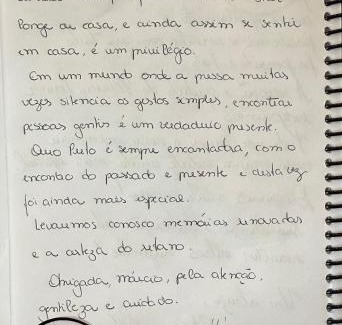 longe de casa, e ainda assim se sentir
em casa, é um privilégio.
Em um mundo onde a pressa muitas
vezes silencia os gestos simples, encontrar
pessoas gentis é um verdadeiro presente.
Ouro Preto é sempre encantadora, com o
encontro do passado e presente e desta vez
foi ainda mais especial.
Levaremos conosco memórias renovadas
e a certeza do retorno.
Obrigada, márcio, pela atenção,
gentileza e cuidado.